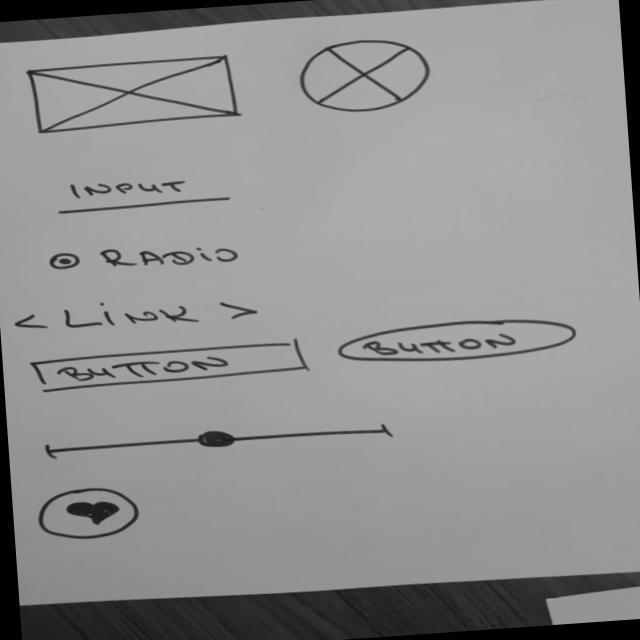 INPUT
RADiO
< LiNK >
BUTTON BUTTON